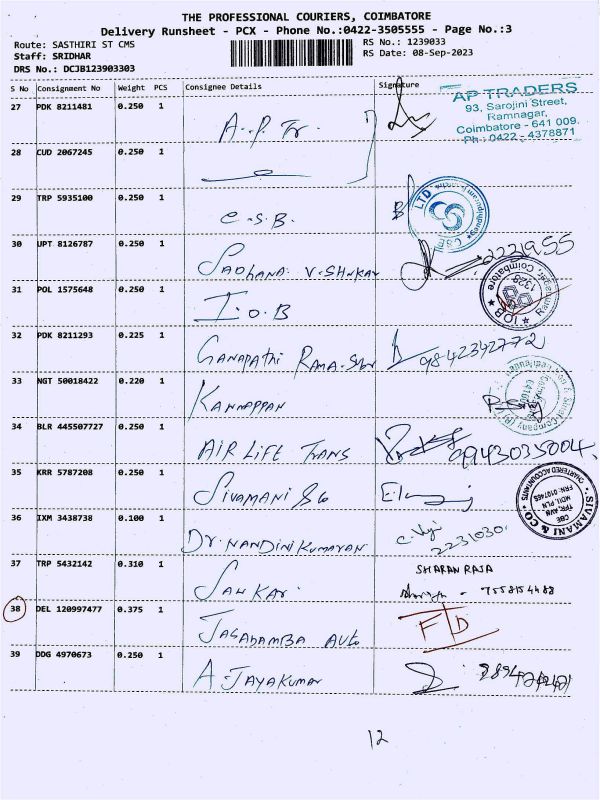 THE PROFESSIONAL COURIERS, COIMBATORE
Delivery Runsheet - PCX - Phone No.:0422-3505555 - Page No.:3
Route: SASTHIRI ST CMS
RS No.: 1239033
Staff: SRIDHAR
RS Date: 08-Sep-2023
DRS No.: DCJB123903303
S No Consignment No Weight PCS Consignee Details Signature
AP TRADERS
93, Sarojini Street,
Ramnagar,
Coimbatore - 641 009.
Ph : 0422 - 4378871
27 PDK 8211481 0.250 1
A.P.Tr.
28 CUD 2067245 0.250 1
29 TRP 5935100 0.250 1
C.S.B.
30 UPT 8126787 0.250 1
SADhANA V.ShNKAR
2221955
31 POL 1575648 0.250 1
I.O.B
IOB Coimbatore 1328
32 PDK 8211293 0.225 1
GANAPAThi RAMA
9842342772
33 NGT 50018422 0.220 1
KANNAPPAN
34 BLR 445507727 0.250 1
AIR LIFE TRANS
9943035004
35 KRR 5787208 0.250 1
SIVAMANI & Co
SIVAMANI & CO
CHARTERED ACCOUNTANTS
36 IXM 3438738 0.100 1
Dr. NANDINI KUMARAN
2231030
37 TRP 5432142 0.310 1
SANKAR
SHARAN RAJA
38 DEL 120997477 0.375 1
JAGADAMBA AUTO
F/D
39 DDG 4970673 0.250 1
A. JAYAKUMAR
12